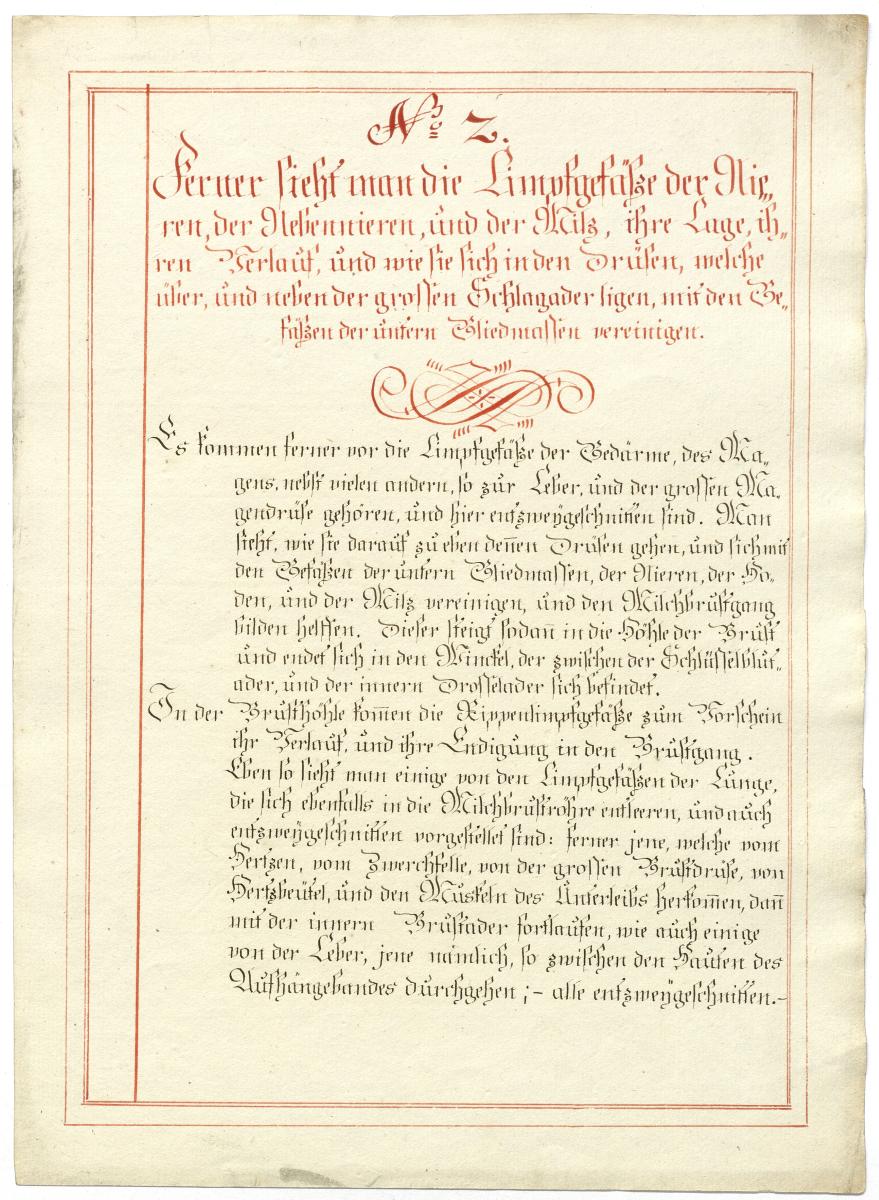 No 2.
Ferner sieht man die Limpfgefäße der Nie„
ren, der Nebennieren, und der Milz, ihre Lage, ih„
ren Verlauf, und wie sie sich in den Drüsen, welche
über, und neben der grossen Schlagader ligen, mit den Ge„
fäßen der untern Gliedmassen vereinigen.
Es kommen ferner vor die Limpfgefäße der Gedärme, des Ma„
gens, nebst vielen andern, so zur Leber, und der grossen Ma„
gendrüse gehören, und hier entzweygeschnitten sind. Man
sieht, wie sie darauf zu eben deñen Drüsen gehen, und sich mit
den Gefäßen der untern Gliedmassen, der Nieren, der Ho„
den, und der Milz vereinigen, und den Milchbrustgang
bilden helffen. Dieser steigt sodañ in die Höhle der Brust
und endet sich in den Winckel, der zwischen der Schlüsselblut„
ader, und der innern Drosselader sich befindet.
In der Brusthöhle kom̄en die Rippenlimpfgefäße zum Vorschein
ihr Verlauf, und ihre Endigung in den Brustgang.
Eben so sieht man einige von den Limpfgefäßen der Lunge,
die sich ebenfalls in die Milchbruströhre entleeren, und auch
entzweygeschnitten vorgestellet sind: ferner jene, welche vom
Hertzen, vom Zwerchfelle, von der grossen Brustdruse, von
Hertzbeutel, und den Muskeln des Unterleibs herkom̄en, dañ
mit der innern Brustader fortlaufen, wie auch einige
von der Leber, jene nämlich, so zwischen den Hauten des
Aufhängebandes durchgehen ;- alle entzweygeschnitten.-